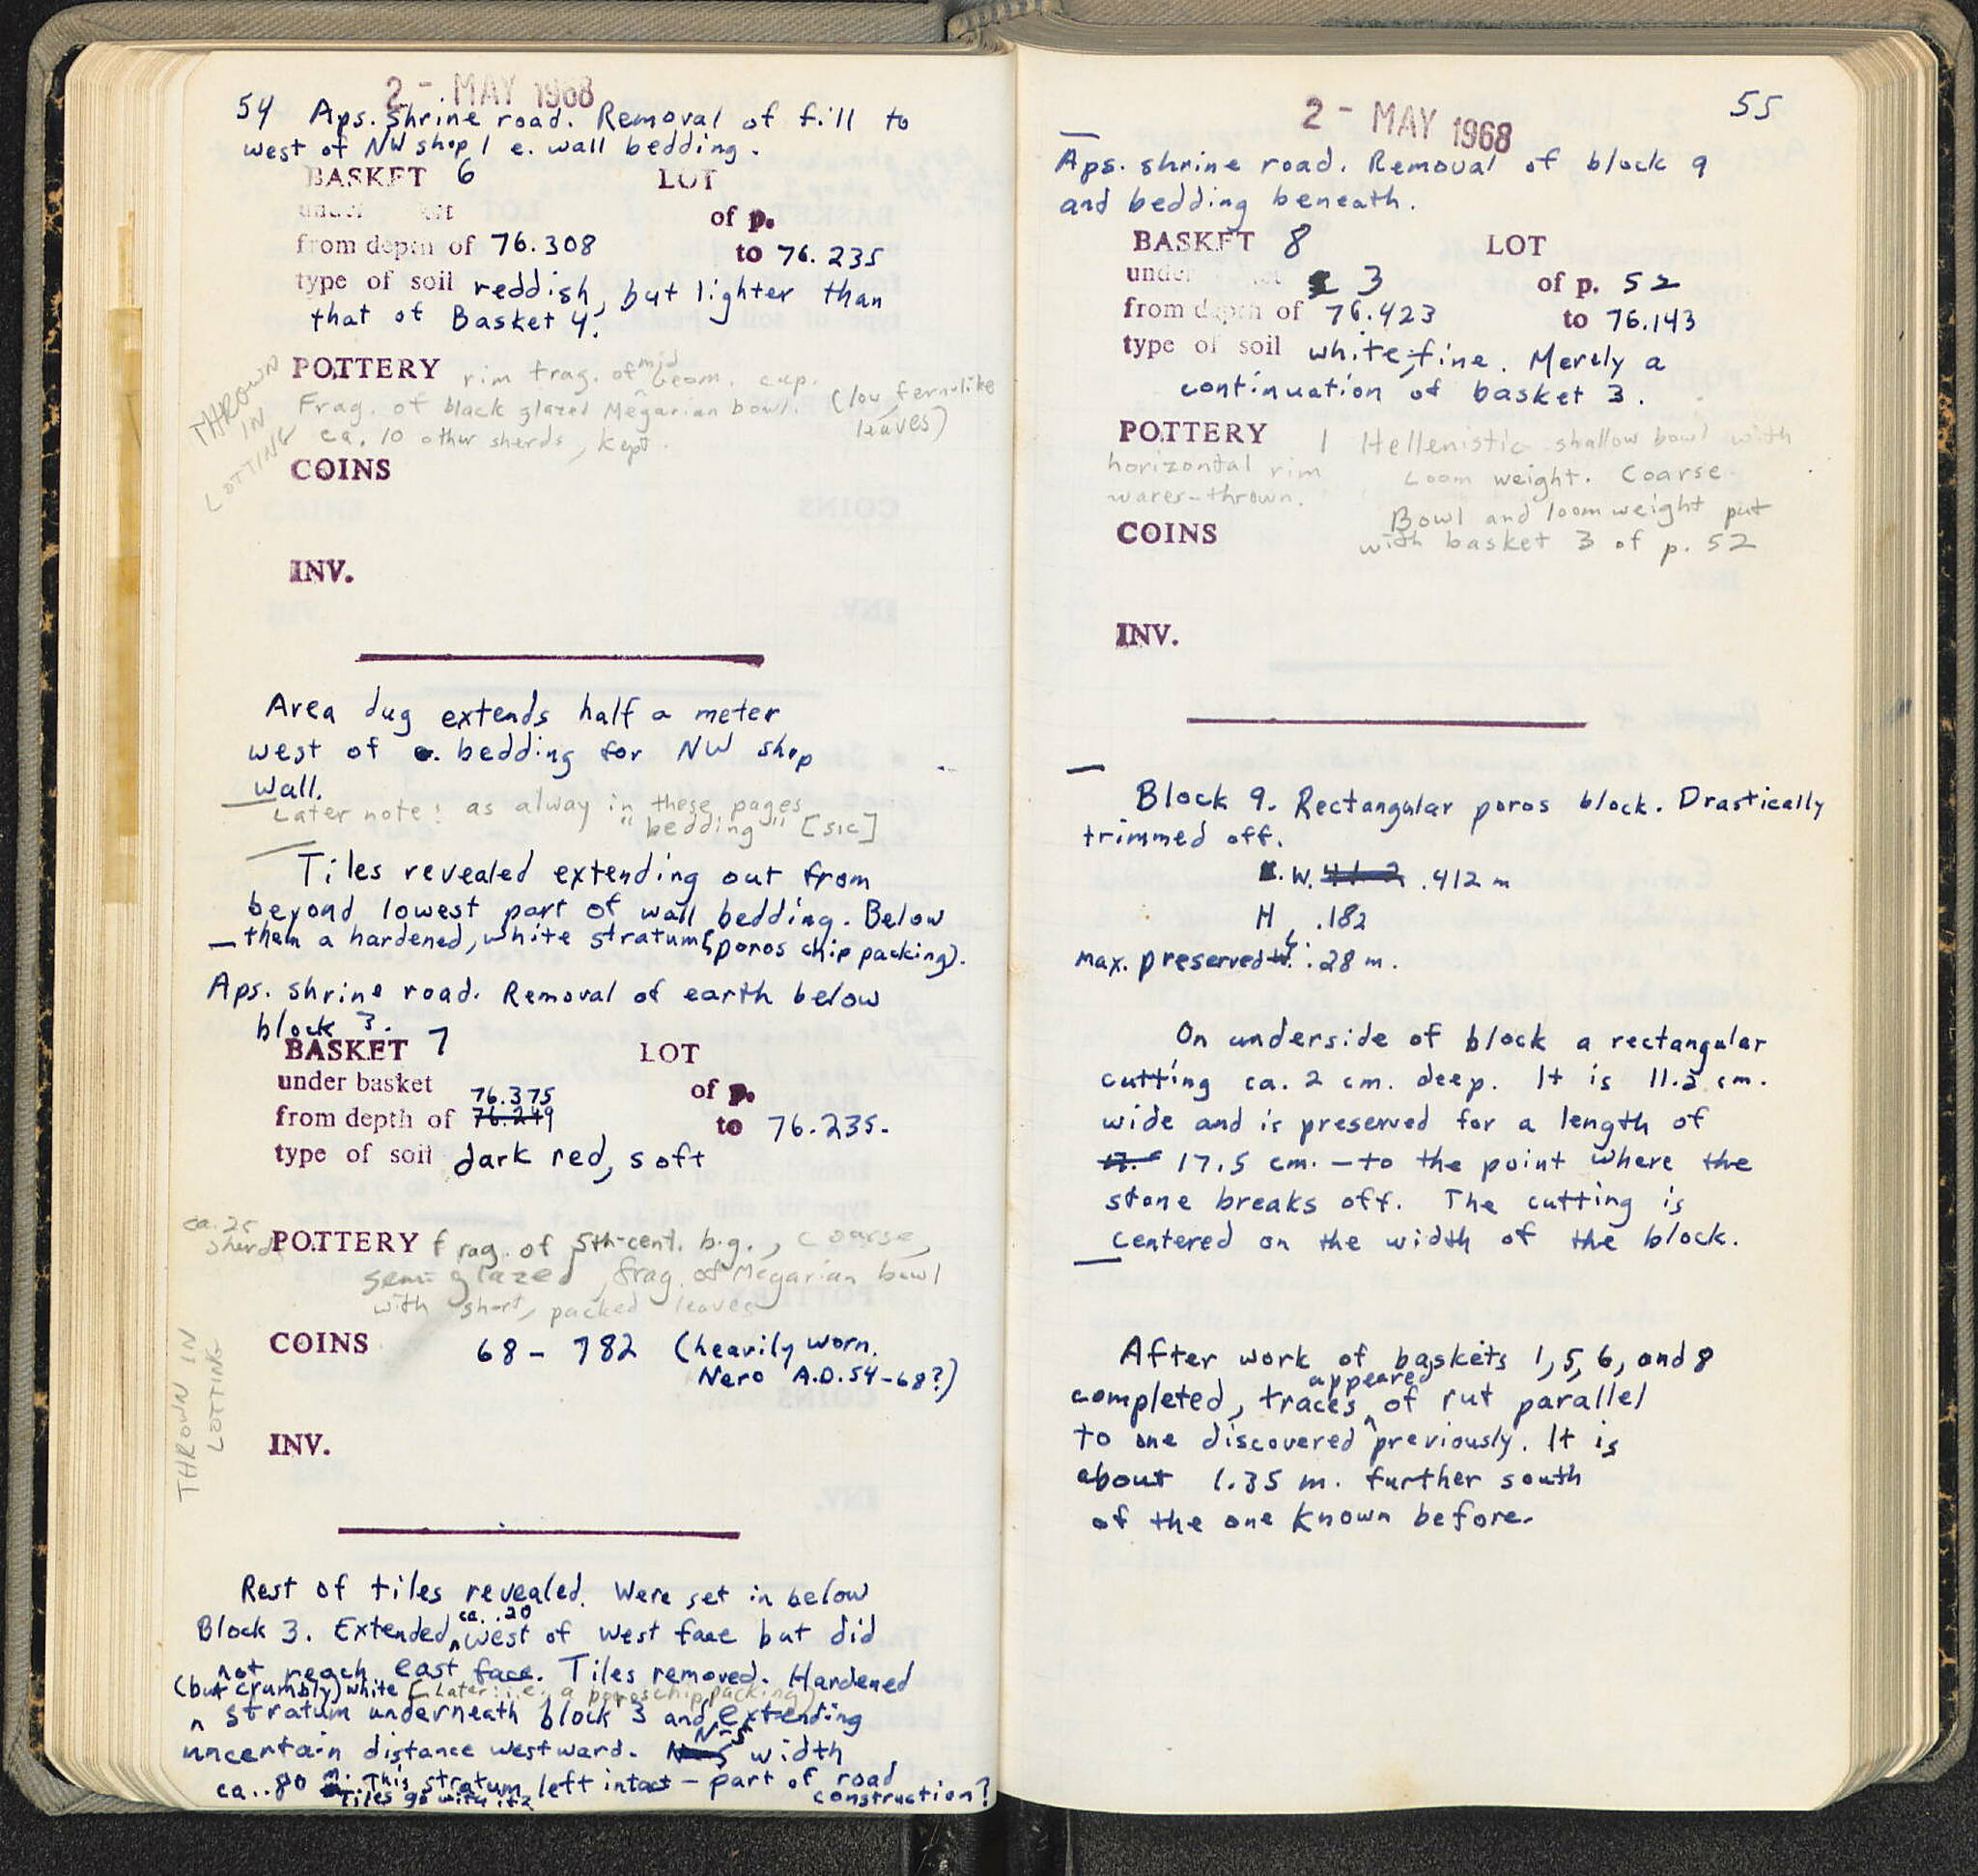 2 - MAY 1968
54 Aps. Shrine road. Removal of fill to
west of NW shop 1 e. wall bedding.
BASKET 6 LOT
under of p.
from depth of 76.308 to 76.235
type of soil reddish, but lighter than
that of Basket 4.
THROWN IN LOTTING
POTTERY rim frag. of mid Geom. cup.
Frag. of black glazed Megarian bowl. (low fernlike
leaves)
ca. 10 other sherds, kept.
COINS
INV.
Area dug extends half a meter
west of e. bedding for NW shop
wall.
Later note: as alway in these pages
"bedding" [sic]
Tiles revealed extending out from
beyond lowest part of wall bedding. Below
them a hardened, white stratum (poros chip packing).
Aps. shrine road. Removal of earth below
block 3.
BASKET 7 LOT
under basket of p.
76.375
from depth of 76.249 to 76.235.
type of soil dark red, soft
ca. 25
sherds
POTTERY frag. of 5th-cent. b.g., coarse,
semi-glazed, frag. of Megarian bowl
with short, packed leaves
THROWN IN
LOTTING
COINS 68 - 782 (heavily worn.
Nero A.D. 54-68?)
INV.
Rest of tiles revealed. Were set in below
ca. .20
Block 3. Extended ^ west of west face but did
not reach east face. Tiles removed. Hardened
(but crumbly) white [Later: i.e. a poros chip packing]
^ stratum underneath block 3 and extending
uncertain distance westward. N-S width
ca. .80 m. This stratum left intact - part of road
construction?
Tiles go with it?
2 - MAY 1968
55
Aps. shrine road. Removal of block 9
and bedding beneath.
BASKET 8 LOT
under 3 of p. 52
from depth of 76.423 to 76.143
type of soil white, fine. Merely a
continuation of basket 3.
POTTERY 1 Hellenistic shallow bowl with
horizontal rim Loom weight. Coarse
wares-thrown.
Bowl and loomweight put
with basket 3 of p. 52
COINS
INV.
Block 9. Rectangular poros block. Drastically
trimmed off.
W. 41.2 .412 m
H .182
max. preserved L. : .28 m.
On underside of block a rectangular
cutting ca. 2 cm. deep. It is 11.5 cm.
wide and is preserved for a length of
17.5 cm. - to the point where the
stone breaks off. The cutting is
centered on the width of the block.
After work of baskets 1, 5, 6, and 8
appeared
completed, traces ^ of rut parallel
to one discovered previously. It is
about 1.35 m. further south
of the one known before.